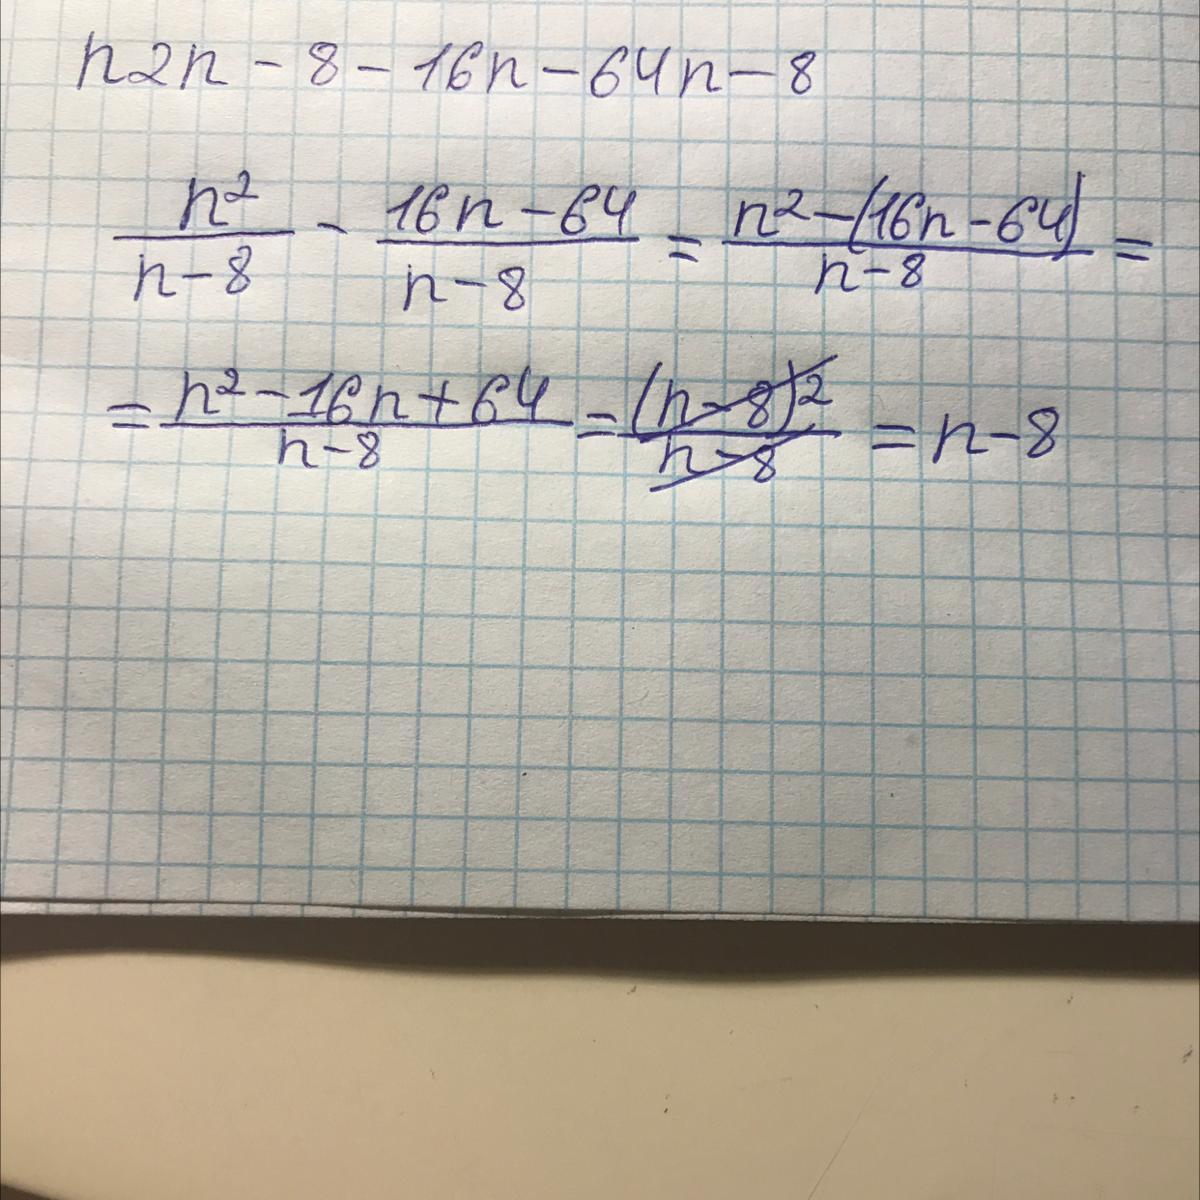 n2n - 8 - 16n - 64n - 8
n²/(n-8) - (16n-64)/(n-8) = (n²-(16n-64))/(n-8) =
= (n²-16n+64)/(n-8) = (n-8)²/(n-8) = n-8